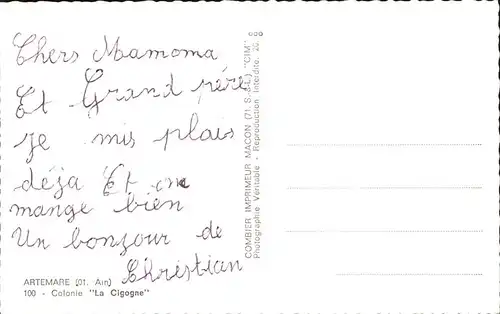 Chers Mamoma
Et Grand père
Je mis plais
déja Et on
mange bien
Un bonjour de
Christian
ARTEMARE (01. Ain)
100 - Colonie "La Cigogne"
COMBIER IMPRIMEUR MACON (71. S.-&-L.) "CIM"
Photographie Véritable - Reproduction Interdite.